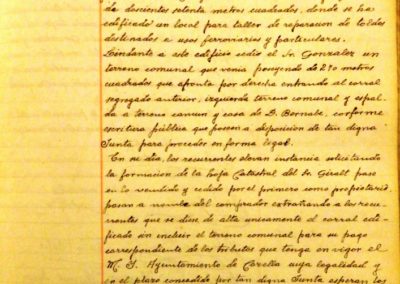 de doscientos setenta metros cuadrados, donde se ha
edificado un local para taller de reparacion de toldos
destinados a usos ferroviarios y particulares.
Lindante a este edificio cedio el Sr. Gonzalez un
terreno comunal que venia poseyendo de 270 metros
cuadrados que afronta por derecha entrando al corral
segregado anterior, izquierda terreno comunal y espal-
da a terreno comun y casa de D. Bernabe, conforme
escritura pública que poseen a disposicion de tan digna
Junta para proceder en forma legal.
En su dia, los recurrentes elevan instancia solicitando
la formacion de la hoja Catastral del Sr. Giralt pase
en lo vendido y cedido por el primero como propietario
pasan a nombre del comprador extrañando a los recu-
rrentes que se diese de alta unicamente el corral edi-
ficado sin incluir el terreno comunal para su pago
correspondiente de los tributos que tenga en vigor el
M. I. Ayuntamiento de cuya legalidad y
en el plazo concedido por tan digna Junta esperan los